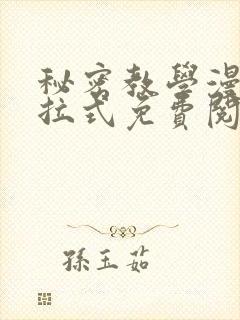 秘密教學漫
拉式免費閱
孫玉茹